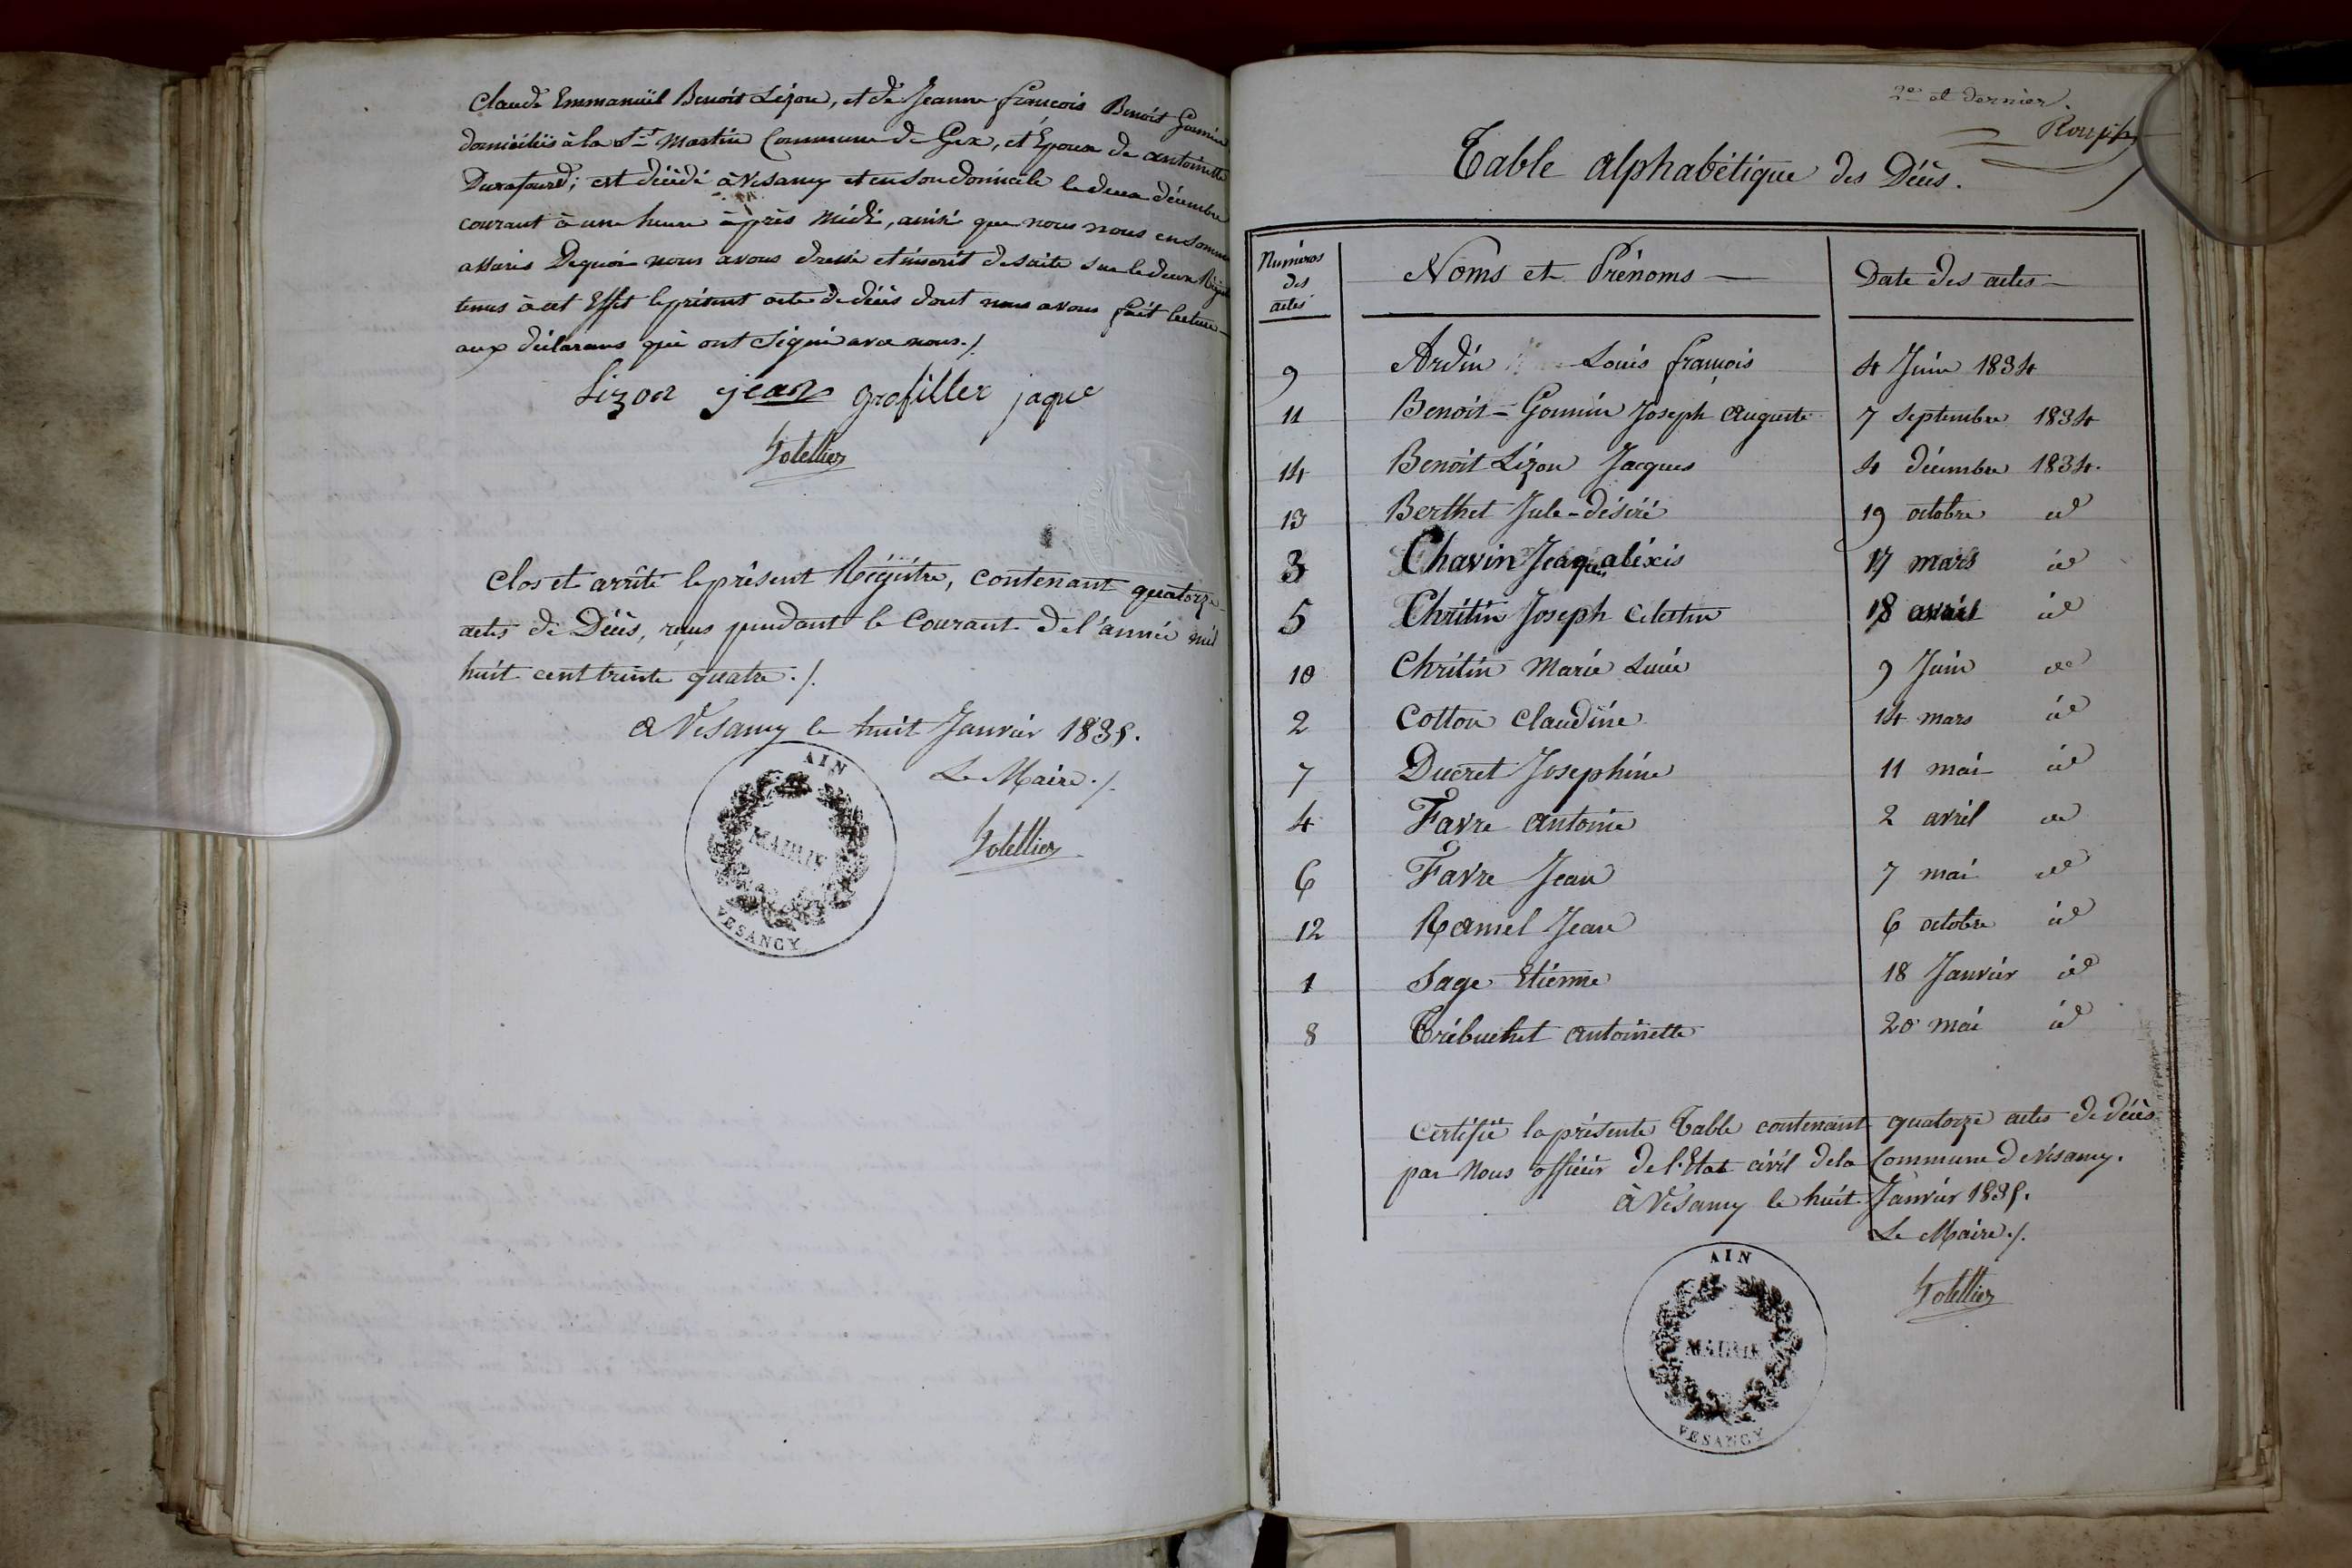 Claude Emmanuël Benoit Lizon, et de Jeanne françois Benoit Gonnin
domiciliés à la St Martin Commune de Gex, et Époux de antoinette
Durafourd; est décédé à Vesancy et en son domicile le deux décembre
courant à une heure après midi, ainsi que nous nous en sommes
assurés Dequoi nous avons dressé et inscrit de suite sur le deux
tenus à cet Effet le présent acte de décès dont nous avons fait lecture
aux déclarans qui ont signé avec nous ./.
Lizon jean grosfiller jaque
Clos et arrêté le présent Régistre, contenant quatorze
actes de Décès, reçus pendant le Courant de l'année mil
huit cent trente quatre ./.
a Vesancy le huit Janvier 1835.
AIN
MAIRIE
VESANCY
Le Maire ./.
2e et dernier.
Table alphabétique des Décès.
Numéros des actes Noms et Prénoms Date des actes
9 Ardin Louis françois 4 Juin 1834
11 Benoit-Gonnin Joseph Auguste 7 septembre 1834
14 Benoit Lizon Jacques 4 décembre 1834.
13 Berthet Jule-désiré 19 octobre id
3 Chavin Jeaque aléxis 17 mars id
5 Chritin Joseph Celestin 18 avril id
10 Chritin Marie Lucie 9 Juin id
2 Cotton Claudine 14 mars id
7 Ducret Josephine 11 mai id
4 Favre Antoine 2 avril id
6 Favre Jean 7 mai id
12 Ramel Jean 6 octobre id
1 Sage Etienne 18 Janvier id
8 Trébuchet antoinette 20 mai id
Certifié la présente Table contenant quatorze actes de décès
par Nous officier de l'Etat civil de la Commune de Vésancy.
à Vesancy le huit Janvier 1835.
Le Maire ./.
AIN
MAIRIE
VESANCY